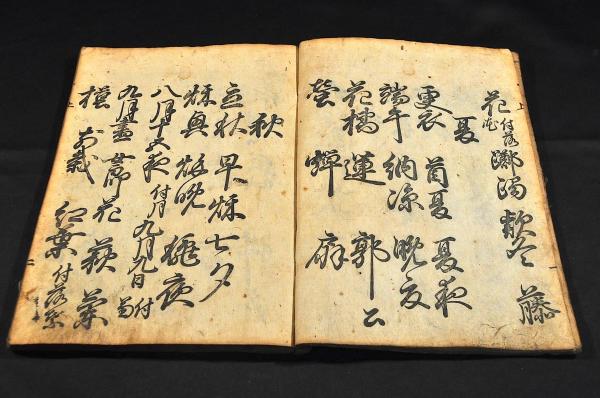 花 付落花 躑躅 款冬 藤
夏
更衣 首夏 夏夜
端午 納涼 晩夏
花橘 蓮 郭公
螢 蝉 扇
秋
立秋 早秋 七夕
秋興 秋晩 秋夜
八月十五夜 付月 九月九日 付菊
九月盡 女郎花 萩 蘭
槿 前栽 紅葉 付落葉